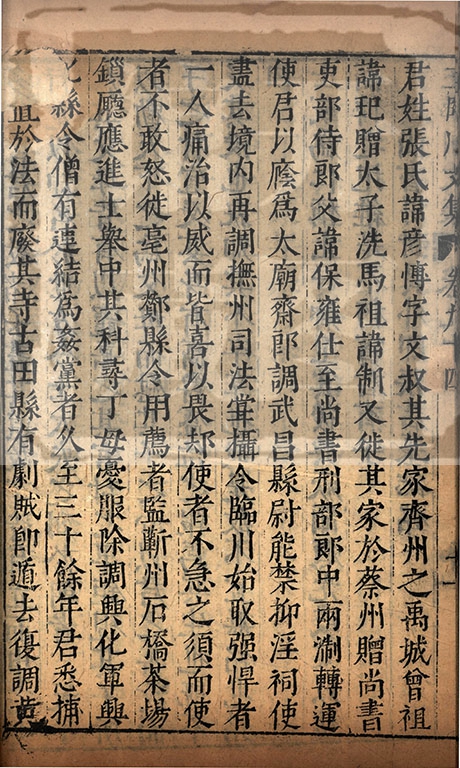 臨川文集 卷九十四
君姓張氏諱彥愽字文叔其先家齊州之禹城曾祖
諱玘贈太子洗馬祖諱制又徙其家於蔡州贈尚書
吏部侍郎父諱保雍仕至尚書刑部郎中兩淛轉運
使君以廕爲太廟齋郎調武昌縣尉能禁抑淫祠使
盡去境内再調撫州司法甞攝令臨川始取强悍者
一人痛治以威而皆喜以畏却使者不急之須而使
者不敢怒徙亳州鄼縣令用薦者監蘄州石橋茶場
鎖廳應進士舉中其科尋丁母憂服除調興化軍興
化縣令僧有連結爲姦黨者久至三十餘年君悉捕
置於法而廢其寺古田縣有劇賊即遁去復調黄